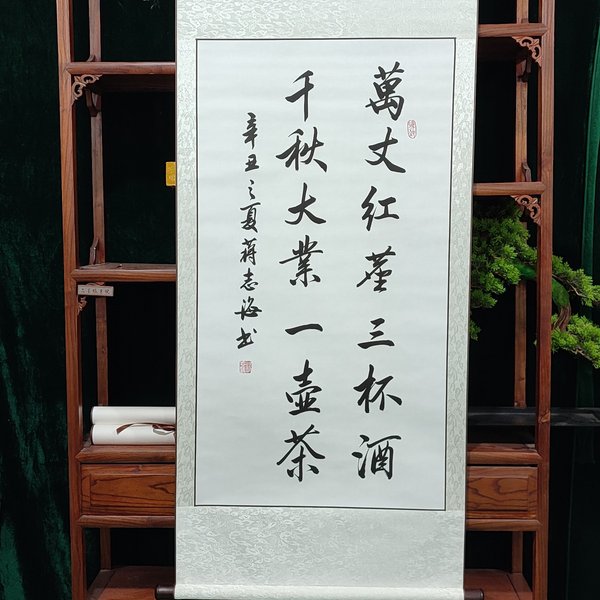 萬丈红塵三杯酒
千秋大業一壶茶
辛丑之夏蒋志海书